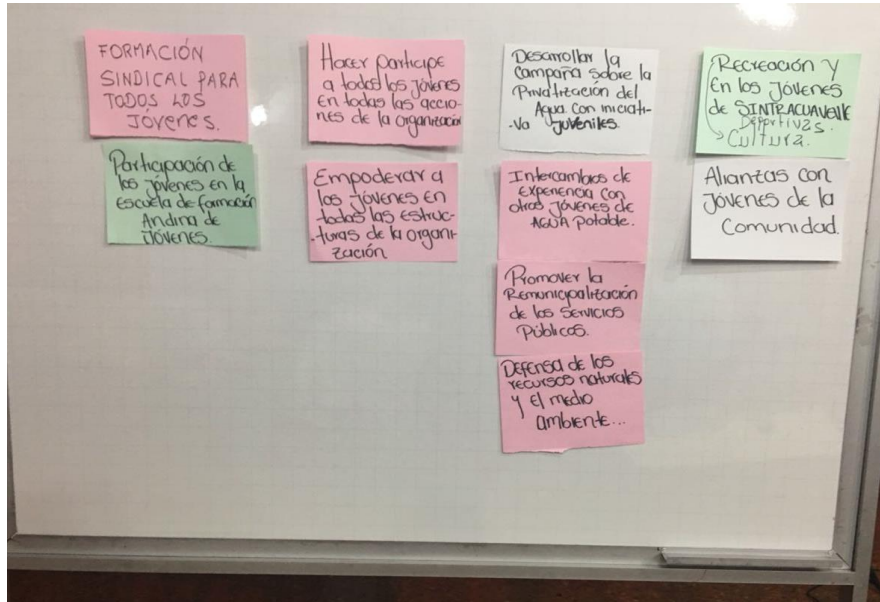 FORMACIÓN
SINDICAL PARA
TODOS LOS
JÓVENES.
Participación de
los Jóvenes en la
Escuela de formación
Andina de
Jóvenes.
Hacer participe
a todos los Jóvenes
en todas las accio-
nes de la organización
Empoderar a
los Jóvenes en
todas las estruc-
turas de la organi-
zación
Desarrollar la
Campaña sobre la
Privatización del
Agua con iniciati-
va juveniles.
Intercambios de
Experiencia con
otros Jóvenes de
AGUA Potable.
Promover la
Remunicipalización
de los Servicios
Públicos.
Defensa de los
recursos naturales
y el medio
ambiente...
Recreación y
En los Jóvenes
de SINTRACUAVALLE
Deportivas.
Cultura.
Alianzas con
Jóvenes de la
Comunidad.